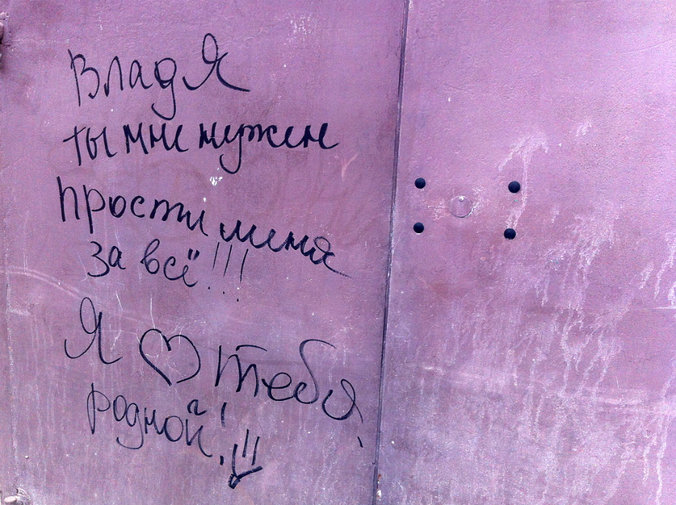 ВладЯ
ты мне нужен
прости меня
за всё!!!
Я ♡ тебя,
родной!!!!